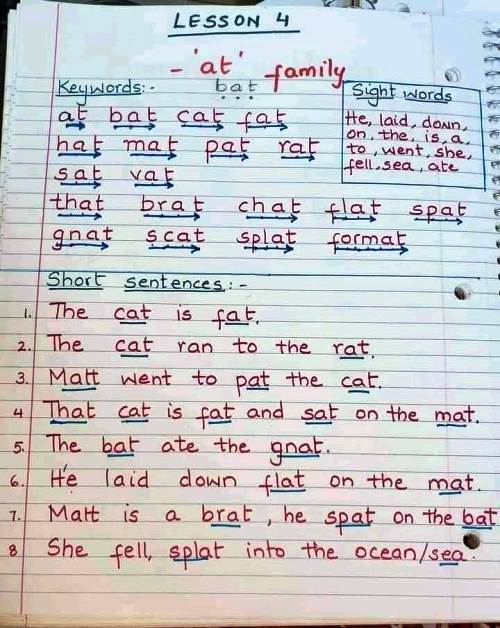 LESSON 4
- 'at' family
Keywords:- bat
Sight words
at bat cat fat
He, laid, down,
on, the, is, a,
to, went, she,
fell, sea, ate
hat mat pat rat
sat vat
that brat chat flat spat
gnat scat splat format
Short sentences:-
1. The cat is fat.
2. The cat ran to the rat.
3. Matt went to pat the cat.
4 That cat is fat and sat on the mat.
5. The bat ate the gnat.
6. He laid down flat on the mat.
7. Matt is a brat, he spat on the bat
8 She fell, splat into the ocean/sea.